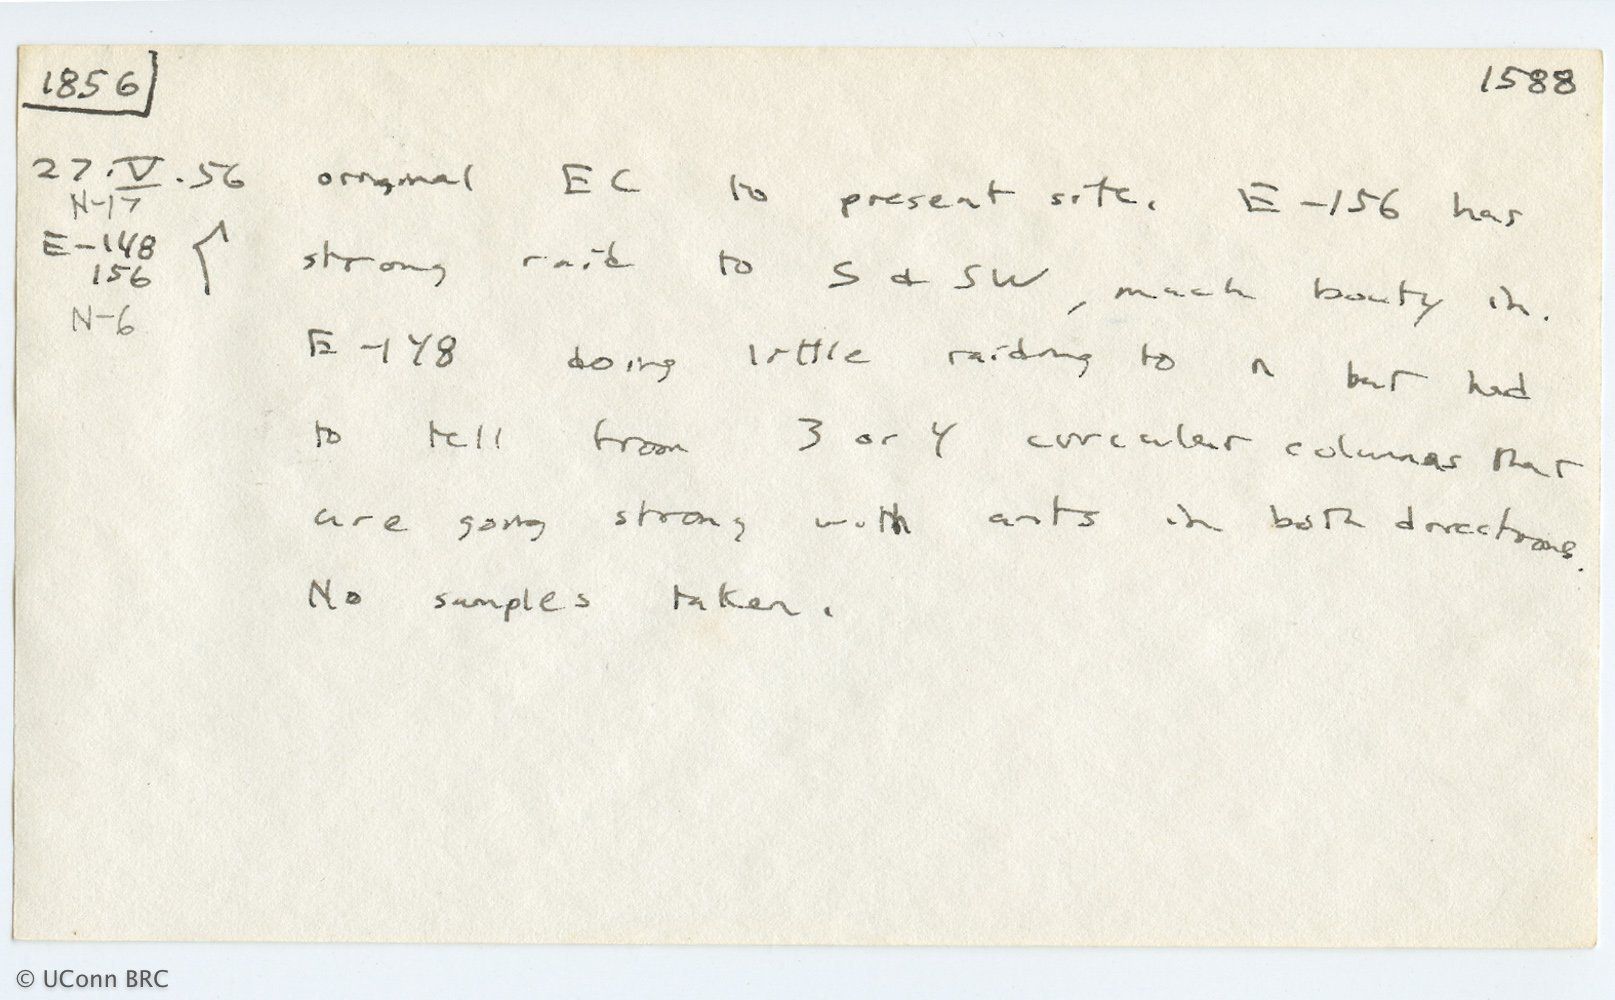 1856 1588
27.V.56 original EC to present site. E-156 has
N-17
E-148 strong raid to S & SW, much booty in.
156
N-6
E-148 doing little raiding to n but had
to tell from 3 or 4 circular columns that
are going strong with ants in both directions.
No samples taken.
© UConn BRC